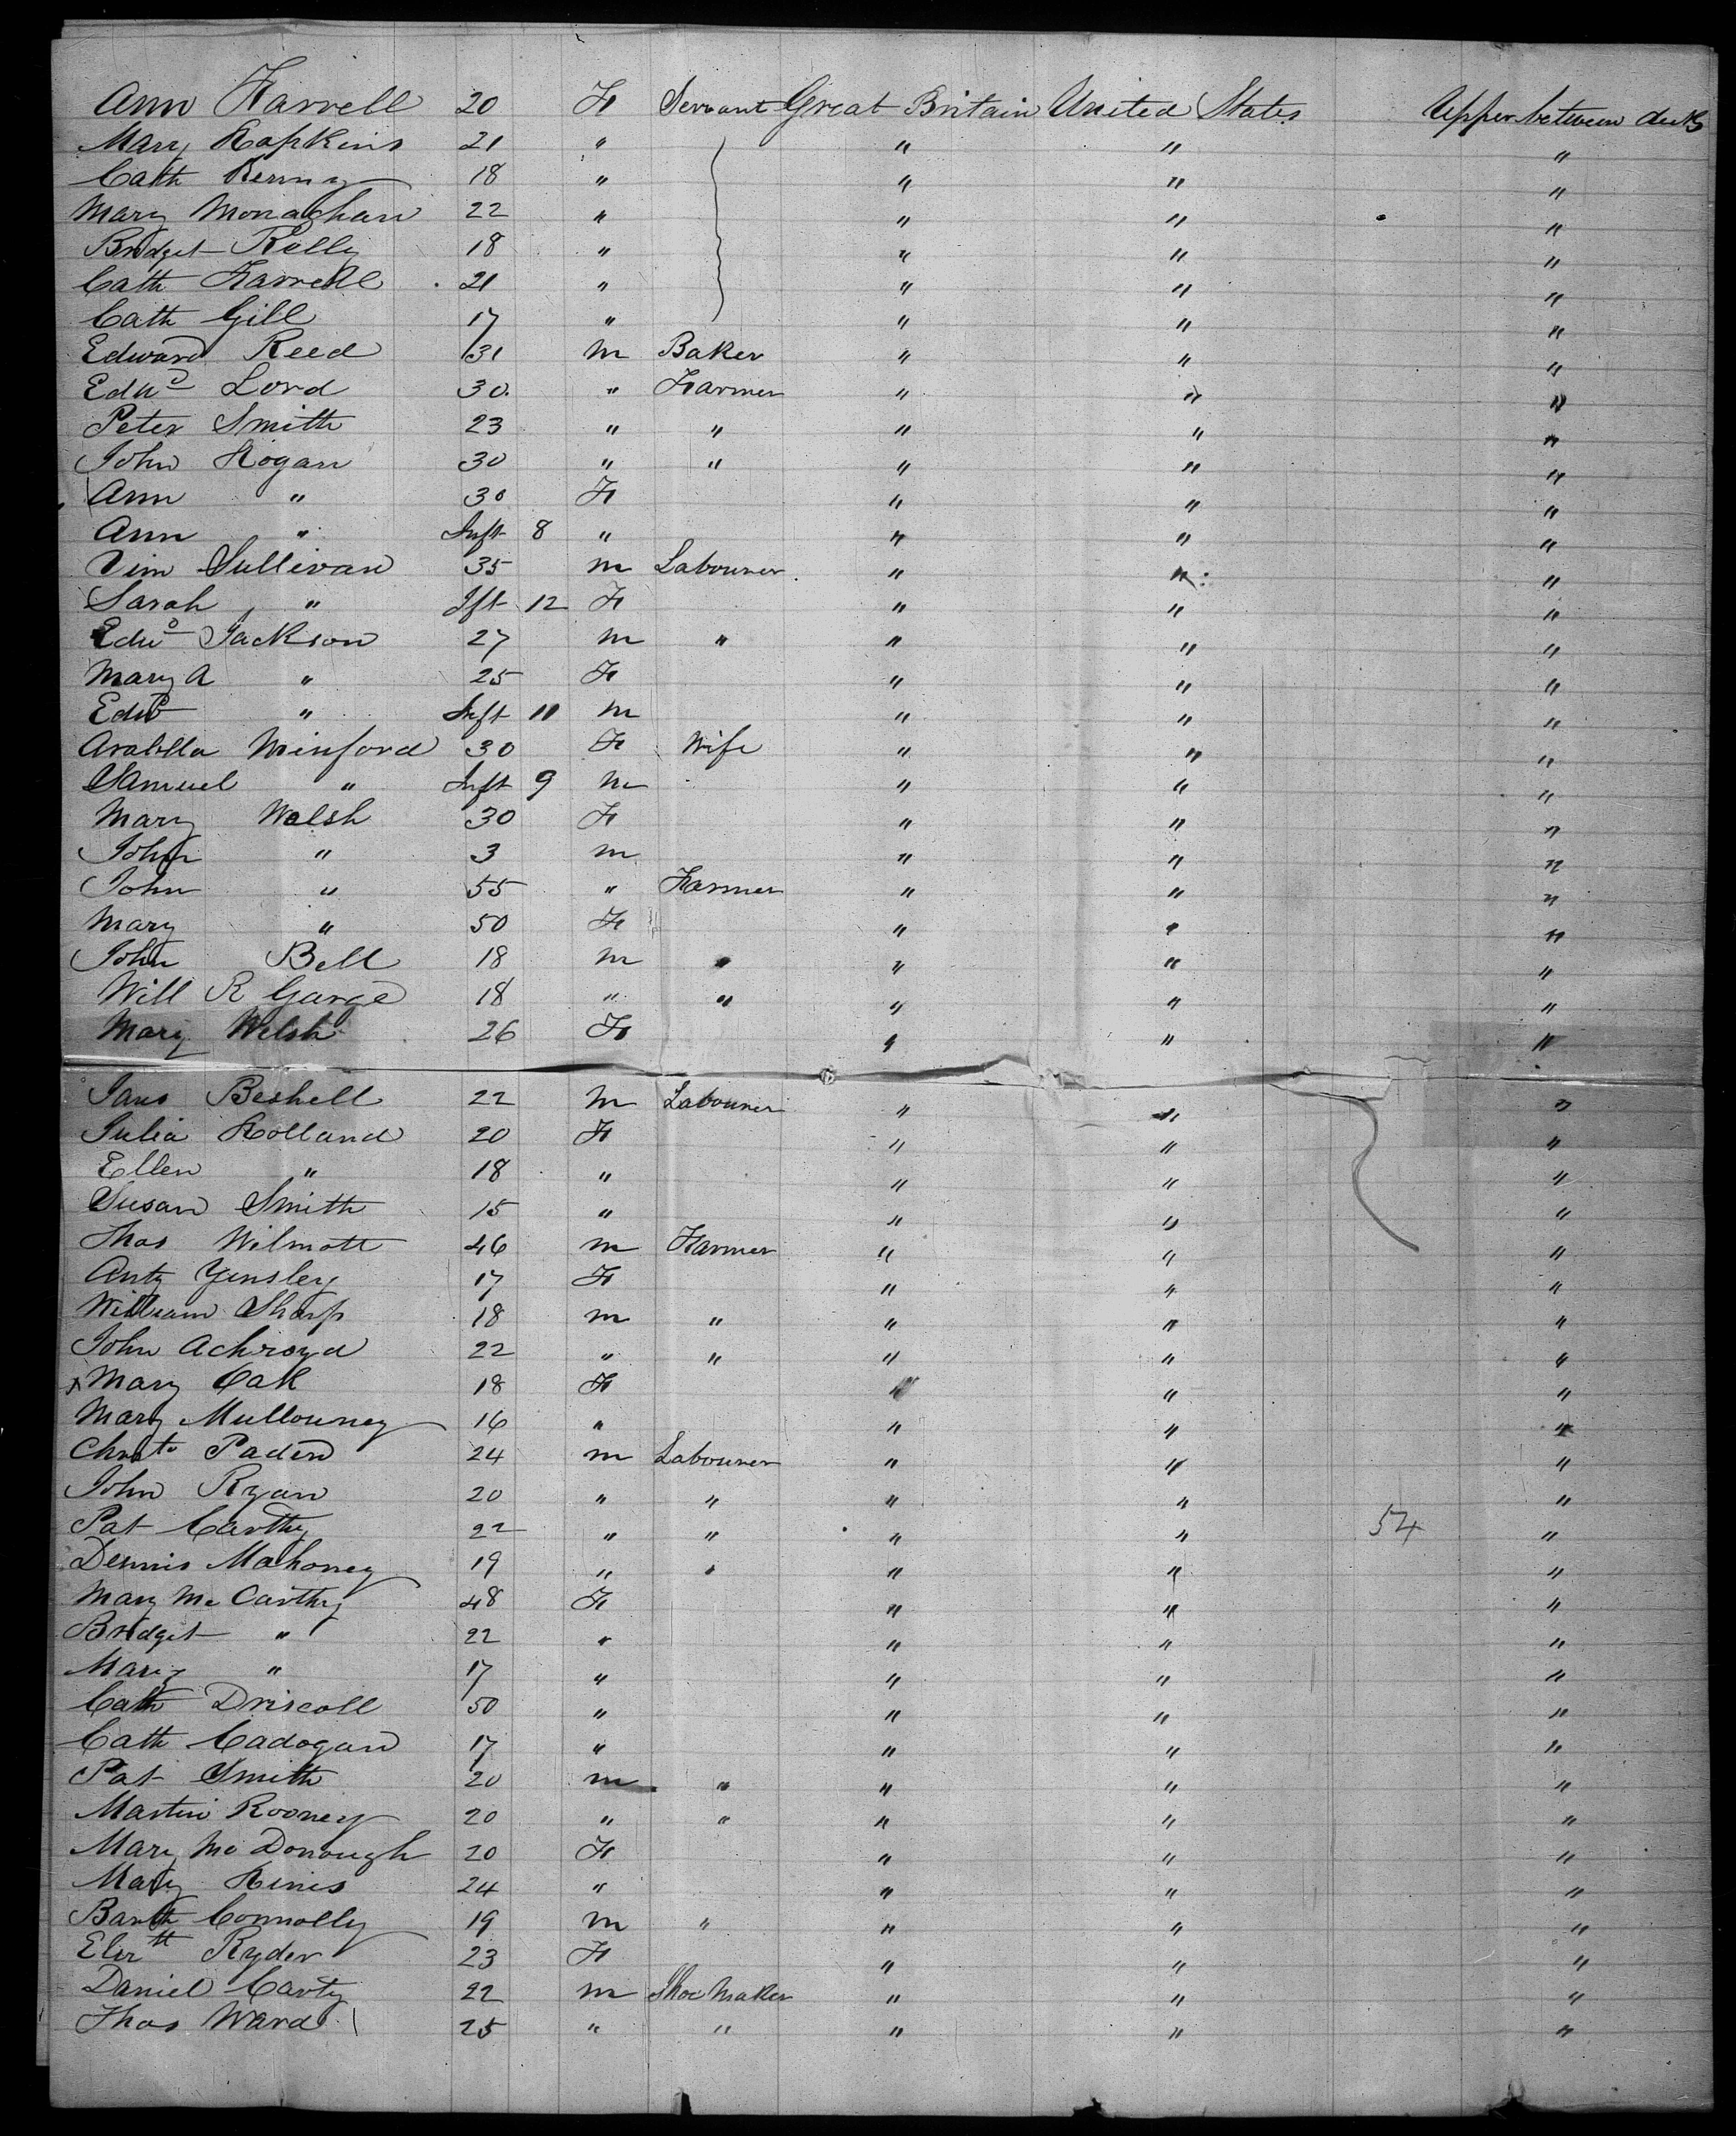 Ann Farrell 20 F Servant Great Britain United States Upper between decks
Mary Hopkins 21 " " " "
Cath Kenny 18 " " " "
Mary Monaghan 22 " " " "
Bridget Kelly 18 " " " "
Cath Farrell 21 " " " "
Cath Gill 17 " " " "
Edward Reed 31 m Baker " " "
Edwd Lord 30 " Farmer " " "
Peter Smith 23 " " " " "
John Hogan 30 " " " " "
Ann " 30 F " " "
Ann " Inft 8 " " " "
Tim Sullivan 35 m Labourer " " "
Sarah " Ift 12 F " " "
Edwd Jackson 27 m " " " "
Mary A " 25 F " " "
Edwd " Inft 11 m " " "
Arabella Minford 30 F Wife " " "
Samuel " Inft 9 m " " "
Mary Welsh 30 F " " "
John " 3 m " " "
John " 55 " Farmer " " "
Mary " 50 F " " "
John Bell 18 m " " " "
Will R Garge 18 " " " " "
Mary Welsh 26 F " " "
Jas Beshell 22 m Labourer " " "
Julia Holland 20 F " " "
Ellen " 18 " " " "
Susan Smith 15 " " " "
Thos Wilmott 46 m Farmer " " "
Anty Yensley 17 F " " "
William Sharp 18 m " " " "
John Achroyd 22 " " " " "
x Mary Call 18 F " " "
Mary Mullowney 16 " " " "
Christr Paden 24 m Labourer " " "
John Ryan 20 " " " " "
Pat Carthy 22 " " " " 54 "
Dennis Mahoney 19 " " " " "
Mary McCarthy 48 F " " "
Bridget " 22 " " " "
Mary " 17 " " " "
Cath Driscoll 50 " " " "
Cath Cadogan 17 " " " "
Pat Smith 20 m " " " "
Martin Rooney 20 " " " " "
Mary McDonough 20 F " " "
Mary Hines 24 " " " "
Barth Connolly 19 m " " " "
Elizth Ryder 23 F " " "
Daniel Carty 22 m Shoe Maker " " "
Thos Ward 25 " " " " "